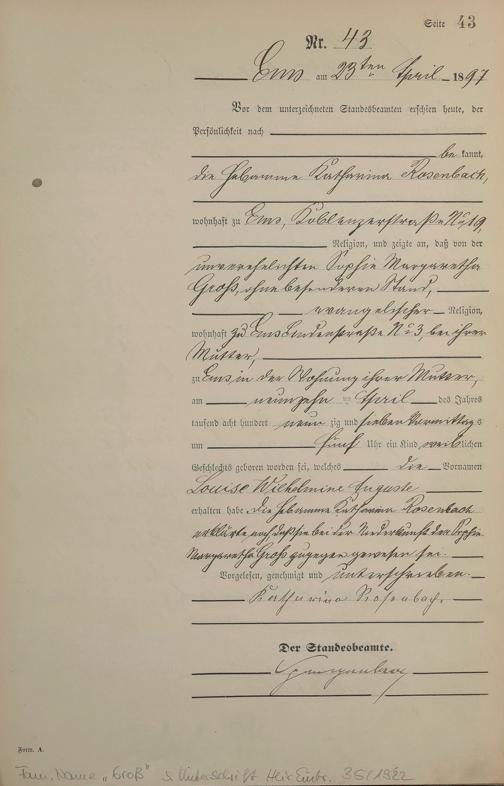 Seite 43
Nr. 43
Ems am 23ten April 1897
Vor dem unterzeichneten Standesbeamten erschien heute, der
Persönlichkeit nach
be kannt,
die Hebamme Katharina Rosenbach,
wohnhaft zu Ems, Koblenzerstraße No 19,
Religion, und zeigte an, daß von der
unverehelichten Sophie Margaretha
Groß, ohne besonderen Stand,
evangelischer Religion,
wohnhaft zu Ems Lindenstraße No 3, bei ihrer
Mutter,
zu Ems, in der Wohnung ihrer Mutter,
am neunzehn ten April des Jahres
tausend acht hundert neun zig und sieben Vormittags
um fünf Uhr ein Kind weiblichen
Geschlechts geboren worden sei, welches die Vornamen
Louise Wilhelmine Auguste
erhalten habe. Die Hebamme Katharina Rosenbach
erklärte noch, daß sie bei der Niederkunft der Sophie
Margaretha Groß zugegen gewesen sei.
Vorgelesen, genehmigt und unterschrieben
Katharina Rosenbach.
Der Standesbeamte.
Form. A.
Fam. Name "Groß" s. Unterschrift Heir. Eintr. 36/1922